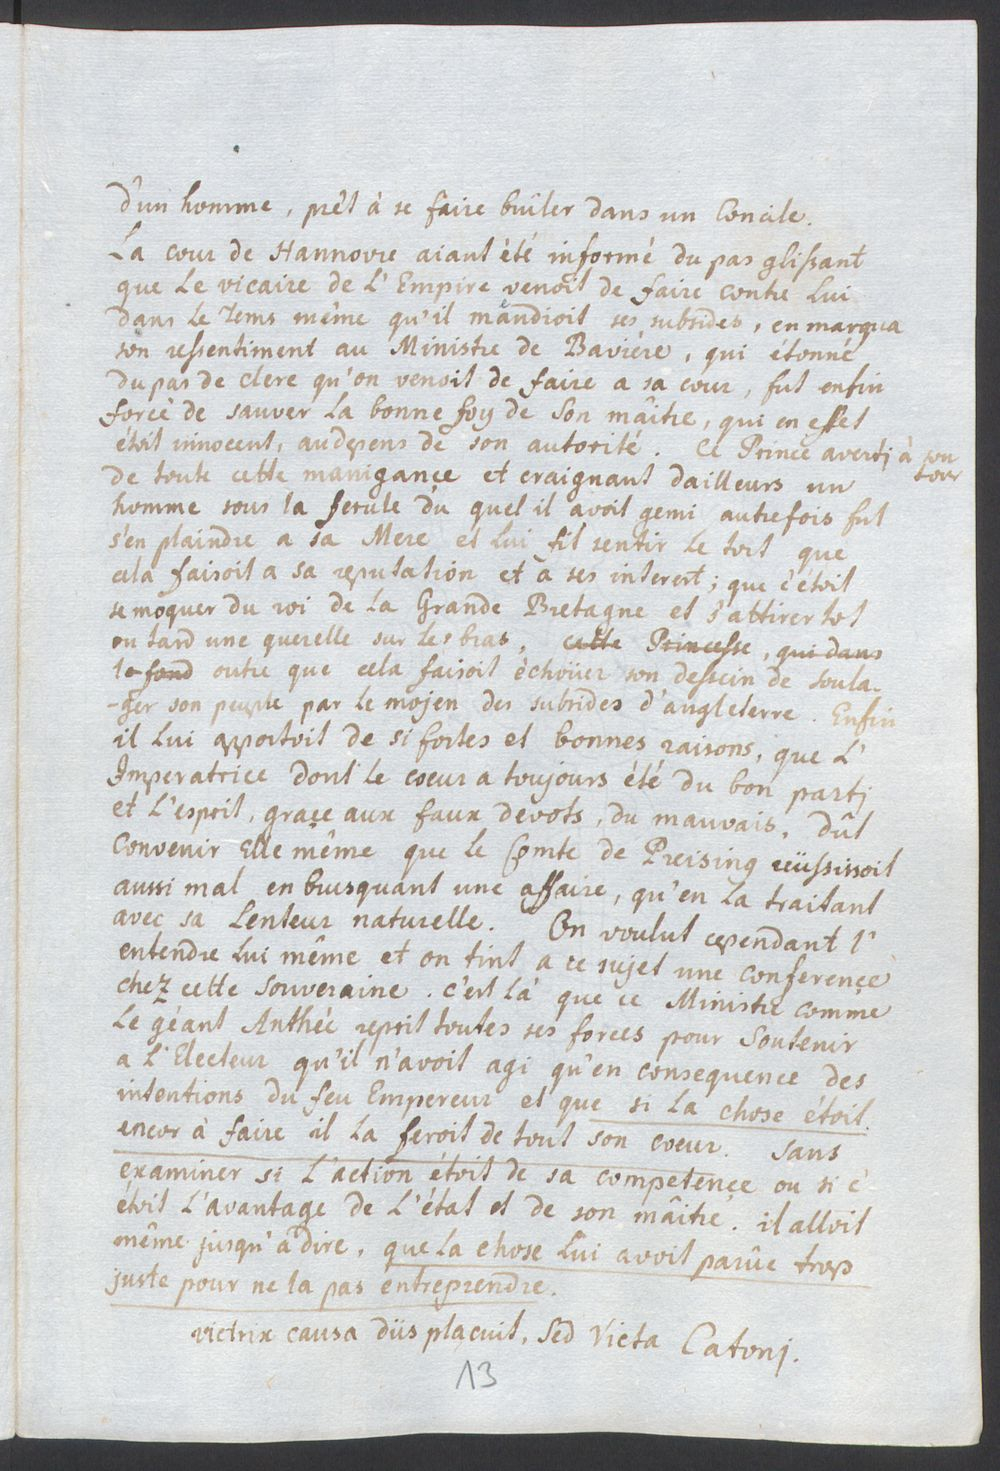 d'un homme, prêt à se faire brûler dans un Concile.
La cour de Hannovre aiant été informé du pas glissant
que Le vicaire de L'Empire venoit de faire contre Lui
dans Le tems même qu'il mandioit ses subsides, en marqua
son ressentiment au Ministre de Baviére, qui étonné
du pas de clerc qu'on venoit de faire a sa cour, fut enfin
forcé de sauver La bonne foy de Son maître, qui en effet
étoit innocent, audepens de son autorité. Ce Prince averti à son
tour
de toute cette manigance et craignant dailleurs un
homme sous la ferule du quel il avoit gemi autrefois fut
s'en plaindre a sa Mere et Lui fit sentir Le tort que
cela faisoit a sa reputation et a ses interert; que c'étoit
se moquer du roi de La Grande Bretagne et s'attirer tot
ou tard une querelle sur Les bras, cette Princesse, qui dans
le fond outre que cela faisoit échoüer son dessein de soula-
-ger son peuple par Le mojen des subsides d'angleterre. Enfin
il Lui apportoit de si fortes et bonnes raisons, que L'
Imperatrice dont Le coeur a toujours été du bon parti
et L'esprit, grace aux faux devots, du mauvais, dût
Convenir Elle même que Le Comte de Preising reüssissoit
aussi mal en brusquant une affaire, qu'en La traitant
avec sa Lenteur naturelle. On voulut cependant l'
entendre Lui même et on tint a ce sujet une conference
chez cette Souveraine. c'est Là que ce Ministre comme
Le géant Anthée reprit toutes ses forces pour Soutenir
a L'Electeur qu'il n'avoit agi qu'en consequence des
intentions du feu Empereur et que si La chose étoit
encor à faire il La feroit de tout son coeur. Sans
examiner si L'action étoit de sa competence ou si c'
étoit L'avantage de L'état et de son maître. il alloit
même jusqu'a dire, que La chose Lui avoit parûe trop
juste pour ne la pas entreprendre.
victrix causa diis placuit, Sed Victa Catoni.
13